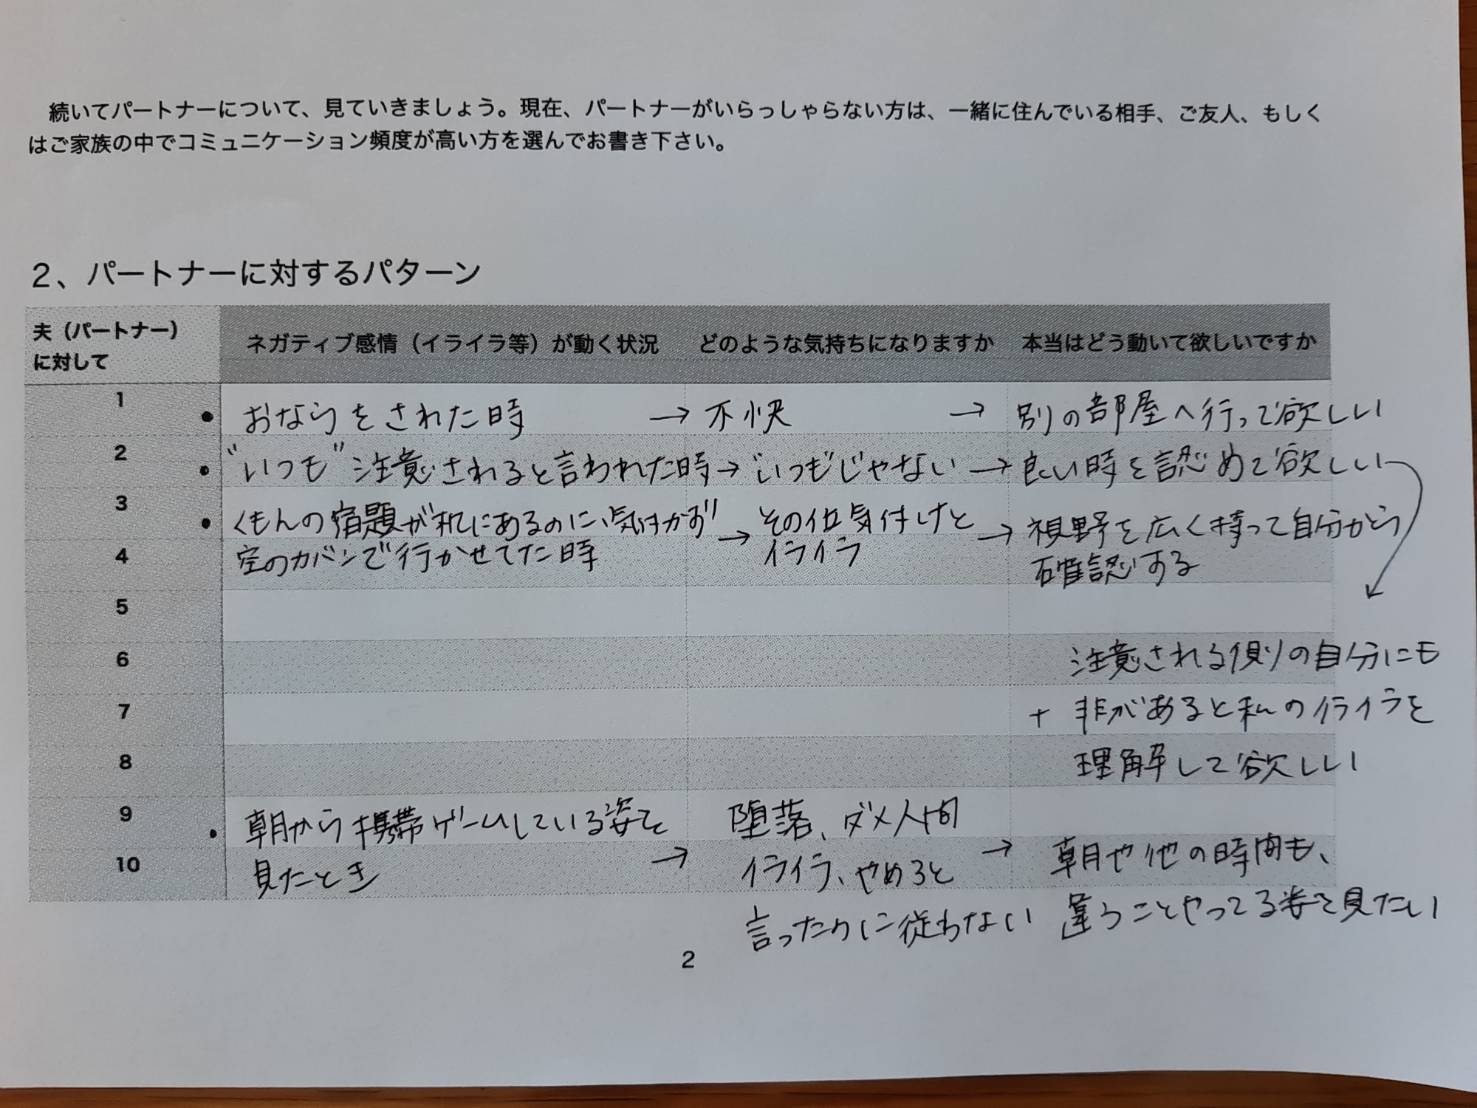 続いてパートナーについて、見ていきましょう。現在、パートナーがいらっしゃらない方は、一緒に住んでいる相手、ご友人、もしく
はご家族の中でコミュニケーション頻度が高い方を選んでお書き下さい。
2、パートナーに対するパターン
夫（パートナー）
に対して
ネガティブ感情（イライラ等）が動く状況 どのような気持ちになりますか 本当はどう動いて欲しいですか
1 ● おならをされた時 → 不快 → 別の部屋へ行って欲しい
2 ● "いつも"注意されると言われた時 → "いつも"じゃない → 良い時を認めて欲しい
3 ● くもんの宿題が机にあるのに、気付かず → その位気付けと → 視野を広く持って自分から
4 空のカバンで行かせてた時 イライラ 確認する
5
6 注意される側の自分にも
7 + 非があると私のイライラを
8 理解して欲しい
9 ● 朝から携帯ゲームしている姿を 堕落、ダメ人間
10 見たとき → イライラ、やめろと → 朝や他の時間も、
言ったのに従わない 違うことやってる姿を見たい
2